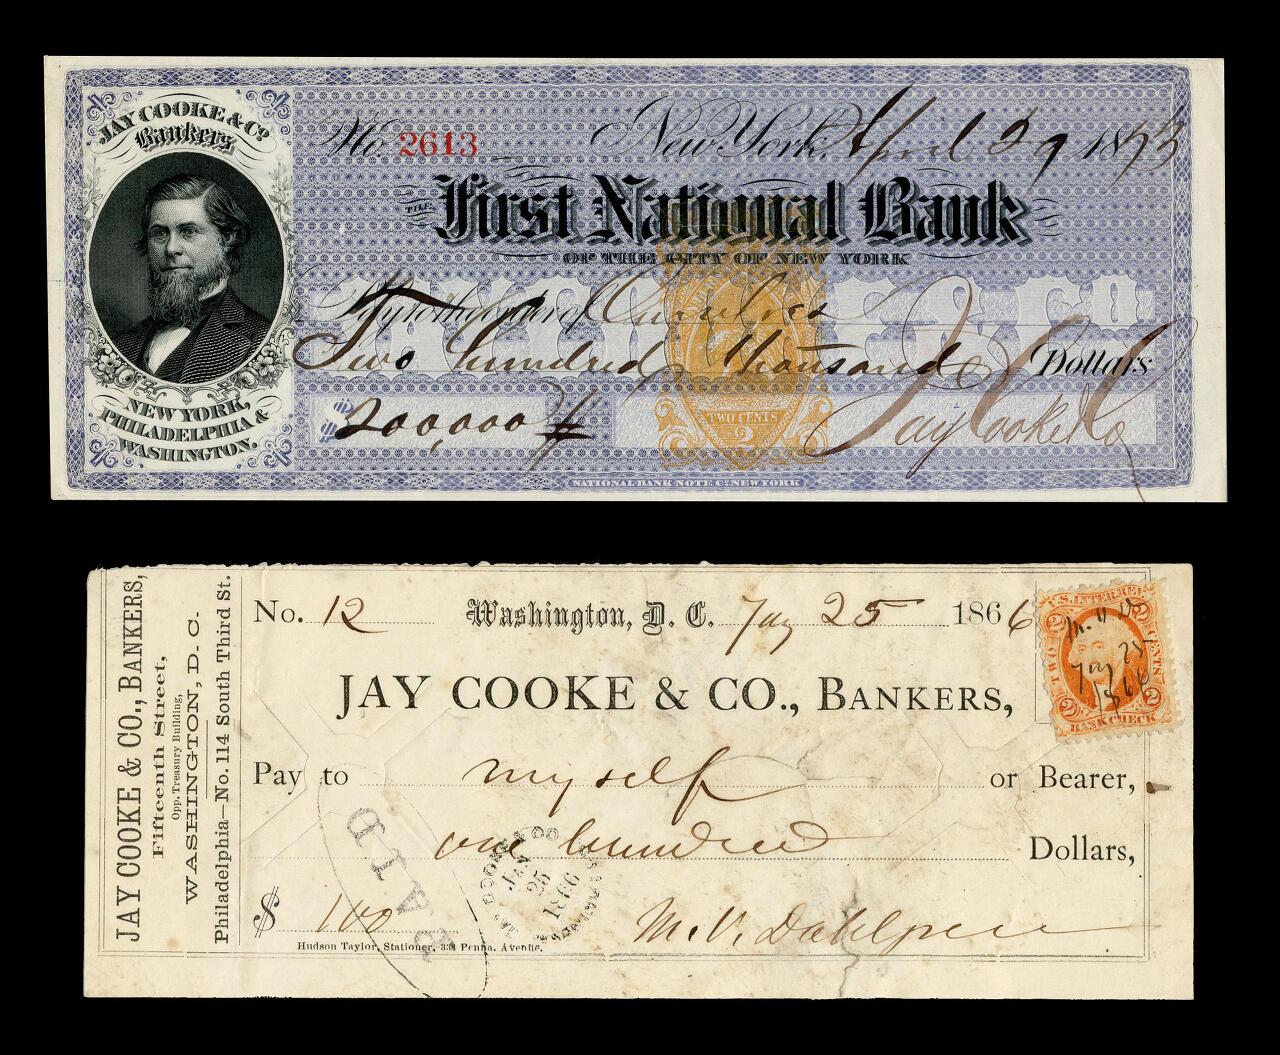 JAY COOKE & Co.
Bankers
NEW YORK,
PHILADELPHIA &
WASHINGTON.
No 2613 New York, April 29 1873
THE First National Bank
OF THE CITY OF NEW YORK
JAY COOKE & Co.
Pay to the order of Ourselves
Two hundred thousand Dollars
$ 200,000
TWO CENTS
2
Jay Cooke & Co
NATIONAL BANK NOTE Co. NEW YORK
JAY COOKE & CO., BANKERS,
Fifteenth Street,
Opp. Treasury Building,
WASHINGTON, D. C.
Philadelphia—No. 114 South Third St.
No. 12 Washington, D. C. Jany 25 1866
U.S. INTER. REV.
TWO CENTS
2 2
BANK CHECK
M.V.D.
Jany 25
1866
JAY COOKE & CO., BANKERS,
Pay to myself or Bearer,
one hundred Dollars,
$ 100
PAID
JAY COOKE & CO.
JAN
25
1866
M. V. Dahlgren
Hudson Taylor, Stationer, 334 Penna. Avenue.